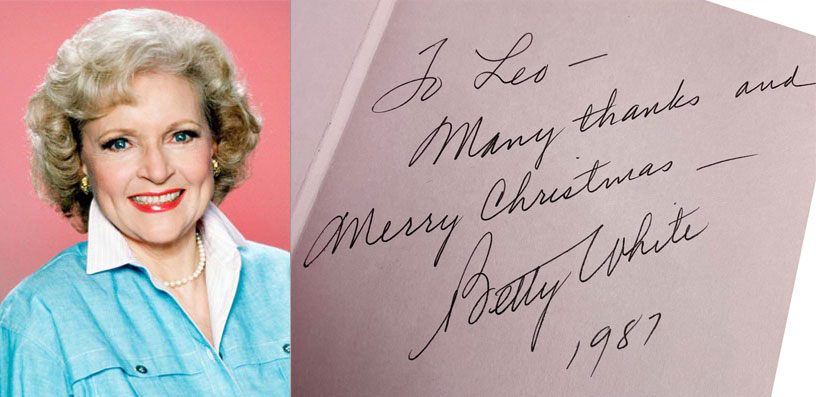 To Leo –
Many thanks and
Merry Christmas –
Betty White
1987